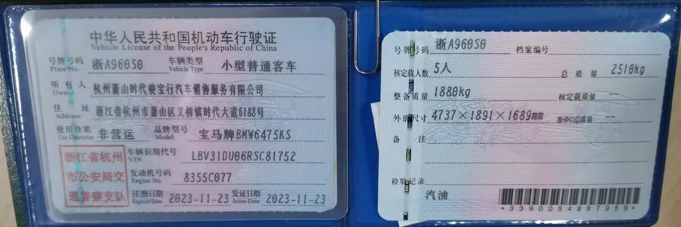 中华人民共和国机动车行驶证
Vehicle License of the People's Republic of China
号牌号码 浙A960S0 车辆类型 小型普通客车
Plate No. Vehicle Type
所有人 杭州萧山时代骏宝行汽车销售服务有限公司
Owner
住址 浙江省杭州市萧山区义桥镇时代大道6188号
Address
使用性质 非营运 品牌型号 宝马牌BMW6475KS
Use Character Model
浙江省杭州市公安局交通警察支队
车辆识别代号 LBV31DU06RSC81752
VIN
发动机号码 8355C077
Engine No.
注册日期 2023-11-23 发证日期 2023-11-23
Register Date Issue Date
号牌号码 浙A960S0 档案编号
核定载人数 5人 总质量 2510kg
整备质量 1880kg 核定载质量 --
外廓尺寸 4737×1891×1689mm 准牵引总质量 --
备注
检验记录
汽油